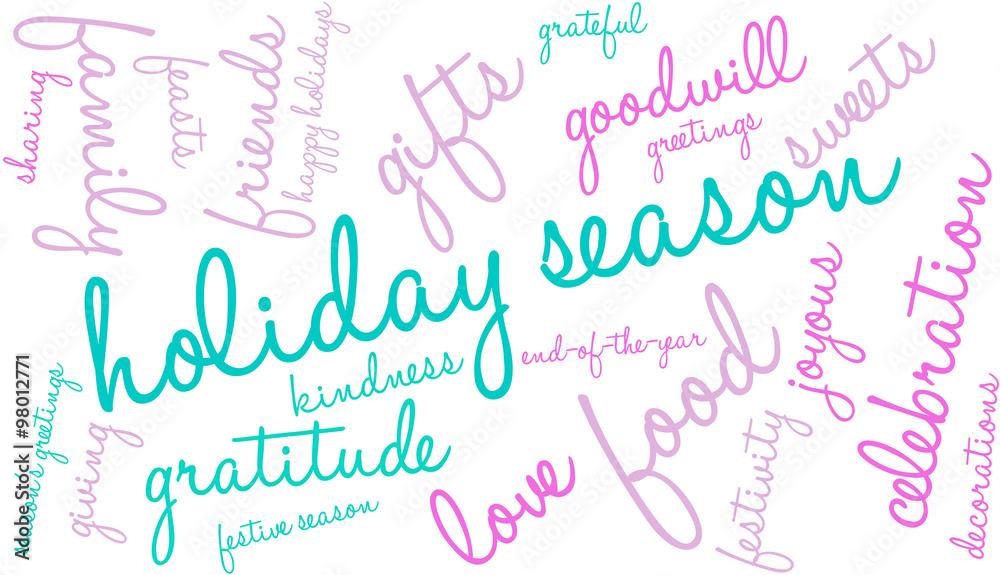 sharing
family
feasts
friends
happy holidays
gifts
grateful
goodwill
greetings
sweets
holiday season
kindness
end-of-the-year
joyous
celebration
season's greetings
giving
gratitude
festive season
love
food
festivity
decorations
Adobe Stock | #98012771